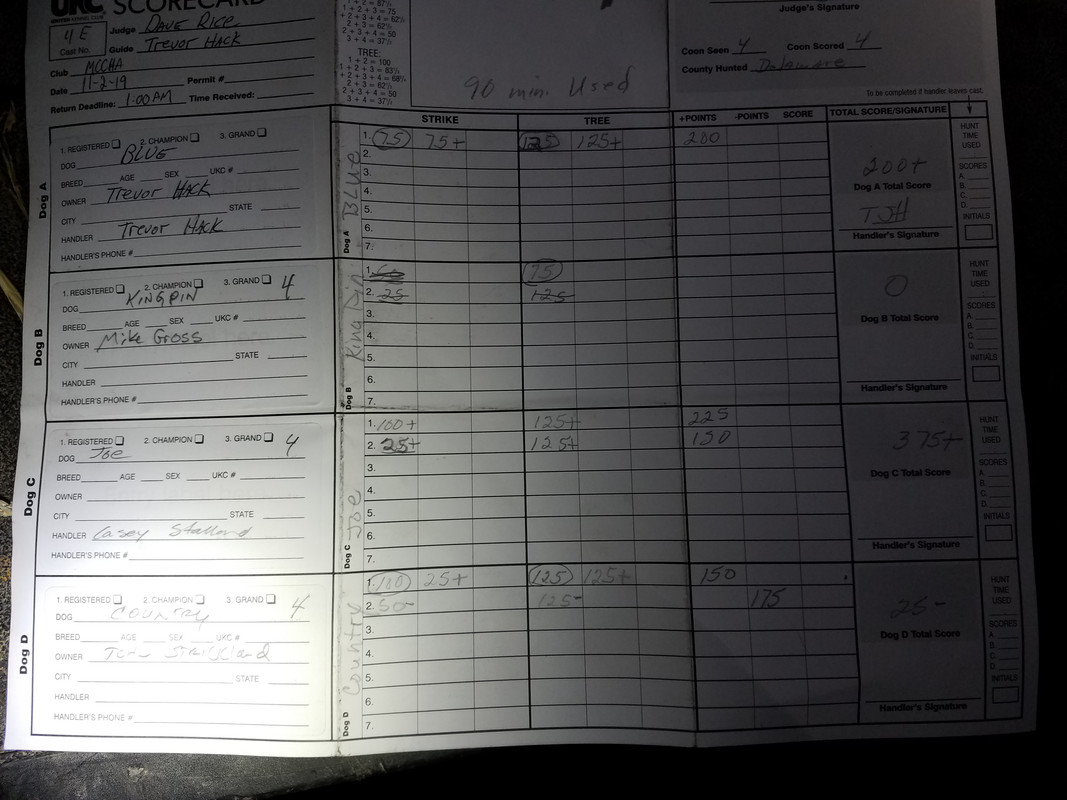 UKC SCORECARD
4 E
Cast No.
Judge DAVE RICE
Guide Trevor HACK
Club MCCHA
Date 11-2-19 Permit #
Return Deadline: 1:00 AM Time Received:
1 + 2 + 3 = 75
2 + 3 + 4 = 50
3 + 4 = 37½
TREE:
1 + 2 = 100
1 + 2 + 3 = 83⅓
2 + 3 = 62½
2 + 3 + 4 = 50
3 + 4 = 37½
90 min. Used
Judge's Signature
Coon Seen 4 Coon Scored 4
County Hunted Delaware
To be completed if handler leaves cast.
STRIKE TREE +POINTS -POINTS SCORE TOTAL SCORE/SIGNATURE
Dog A
1. REGISTERED 2. CHAMPION 3. GRAND
DOG BLUE
BREED AGE SEX UKC #
OWNER Trevor HACK
CITY STATE
HANDLER Trevor HACK
HANDLER'S PHONE #
Dog A Blue
1. 75 75+ 125 125+ 200
2.
3.
4.
5.
6.
7.
200+
Dog A Total Score
TJH
Handler's Signature
HUNT
TIME
USED
SCORES
A.
B.
C.
D.
INITIALS
Dog B
1. REGISTERED 2. CHAMPION 3. GRAND 4
DOG KINGPIN
BREED AGE SEX UKC #
OWNER Mike Gross
CITY STATE
HANDLER
HANDLER'S PHONE #
Dog B King Pin
1. 75
2. 25 125
3.
4.
5.
6.
7.
0
Dog B Total Score
Handler's Signature
HUNT
TIME
USED
SCORES
A.
B.
C.
D.
INITIALS
Dog C
1. REGISTERED 2. CHAMPION 3. GRAND 4
DOG Joe
BREED AGE SEX UKC #
OWNER
CITY STATE
HANDLER Casey
HANDLER'S PHONE #
Dog C Joe
1. 100+ 125+ 225
2. 25+ 125+ 150
3.
4.
5.
6.
7.
375+
Dog C Total Score
Handler's Signature
HUNT
TIME
USED
SCORES
A.
B.
C.
D.
INITIALS
Dog D
1. REGISTERED 2. CHAMPION 3. GRAND 4
DOG COUNTRY
BREED AGE SEX UKC #
OWNER Strickland
CITY STATE
HANDLER
HANDLER'S PHONE #
Dog D Country
1. 100 25+ 125 125+ 150
2. 50- 125- 175
3.
4.
5.
6.
7.
25-
Dog D Total Score
Handler's Signature
HUNT
TIME
USED
SCORES
A.
B.
C.
D.
INITIALS